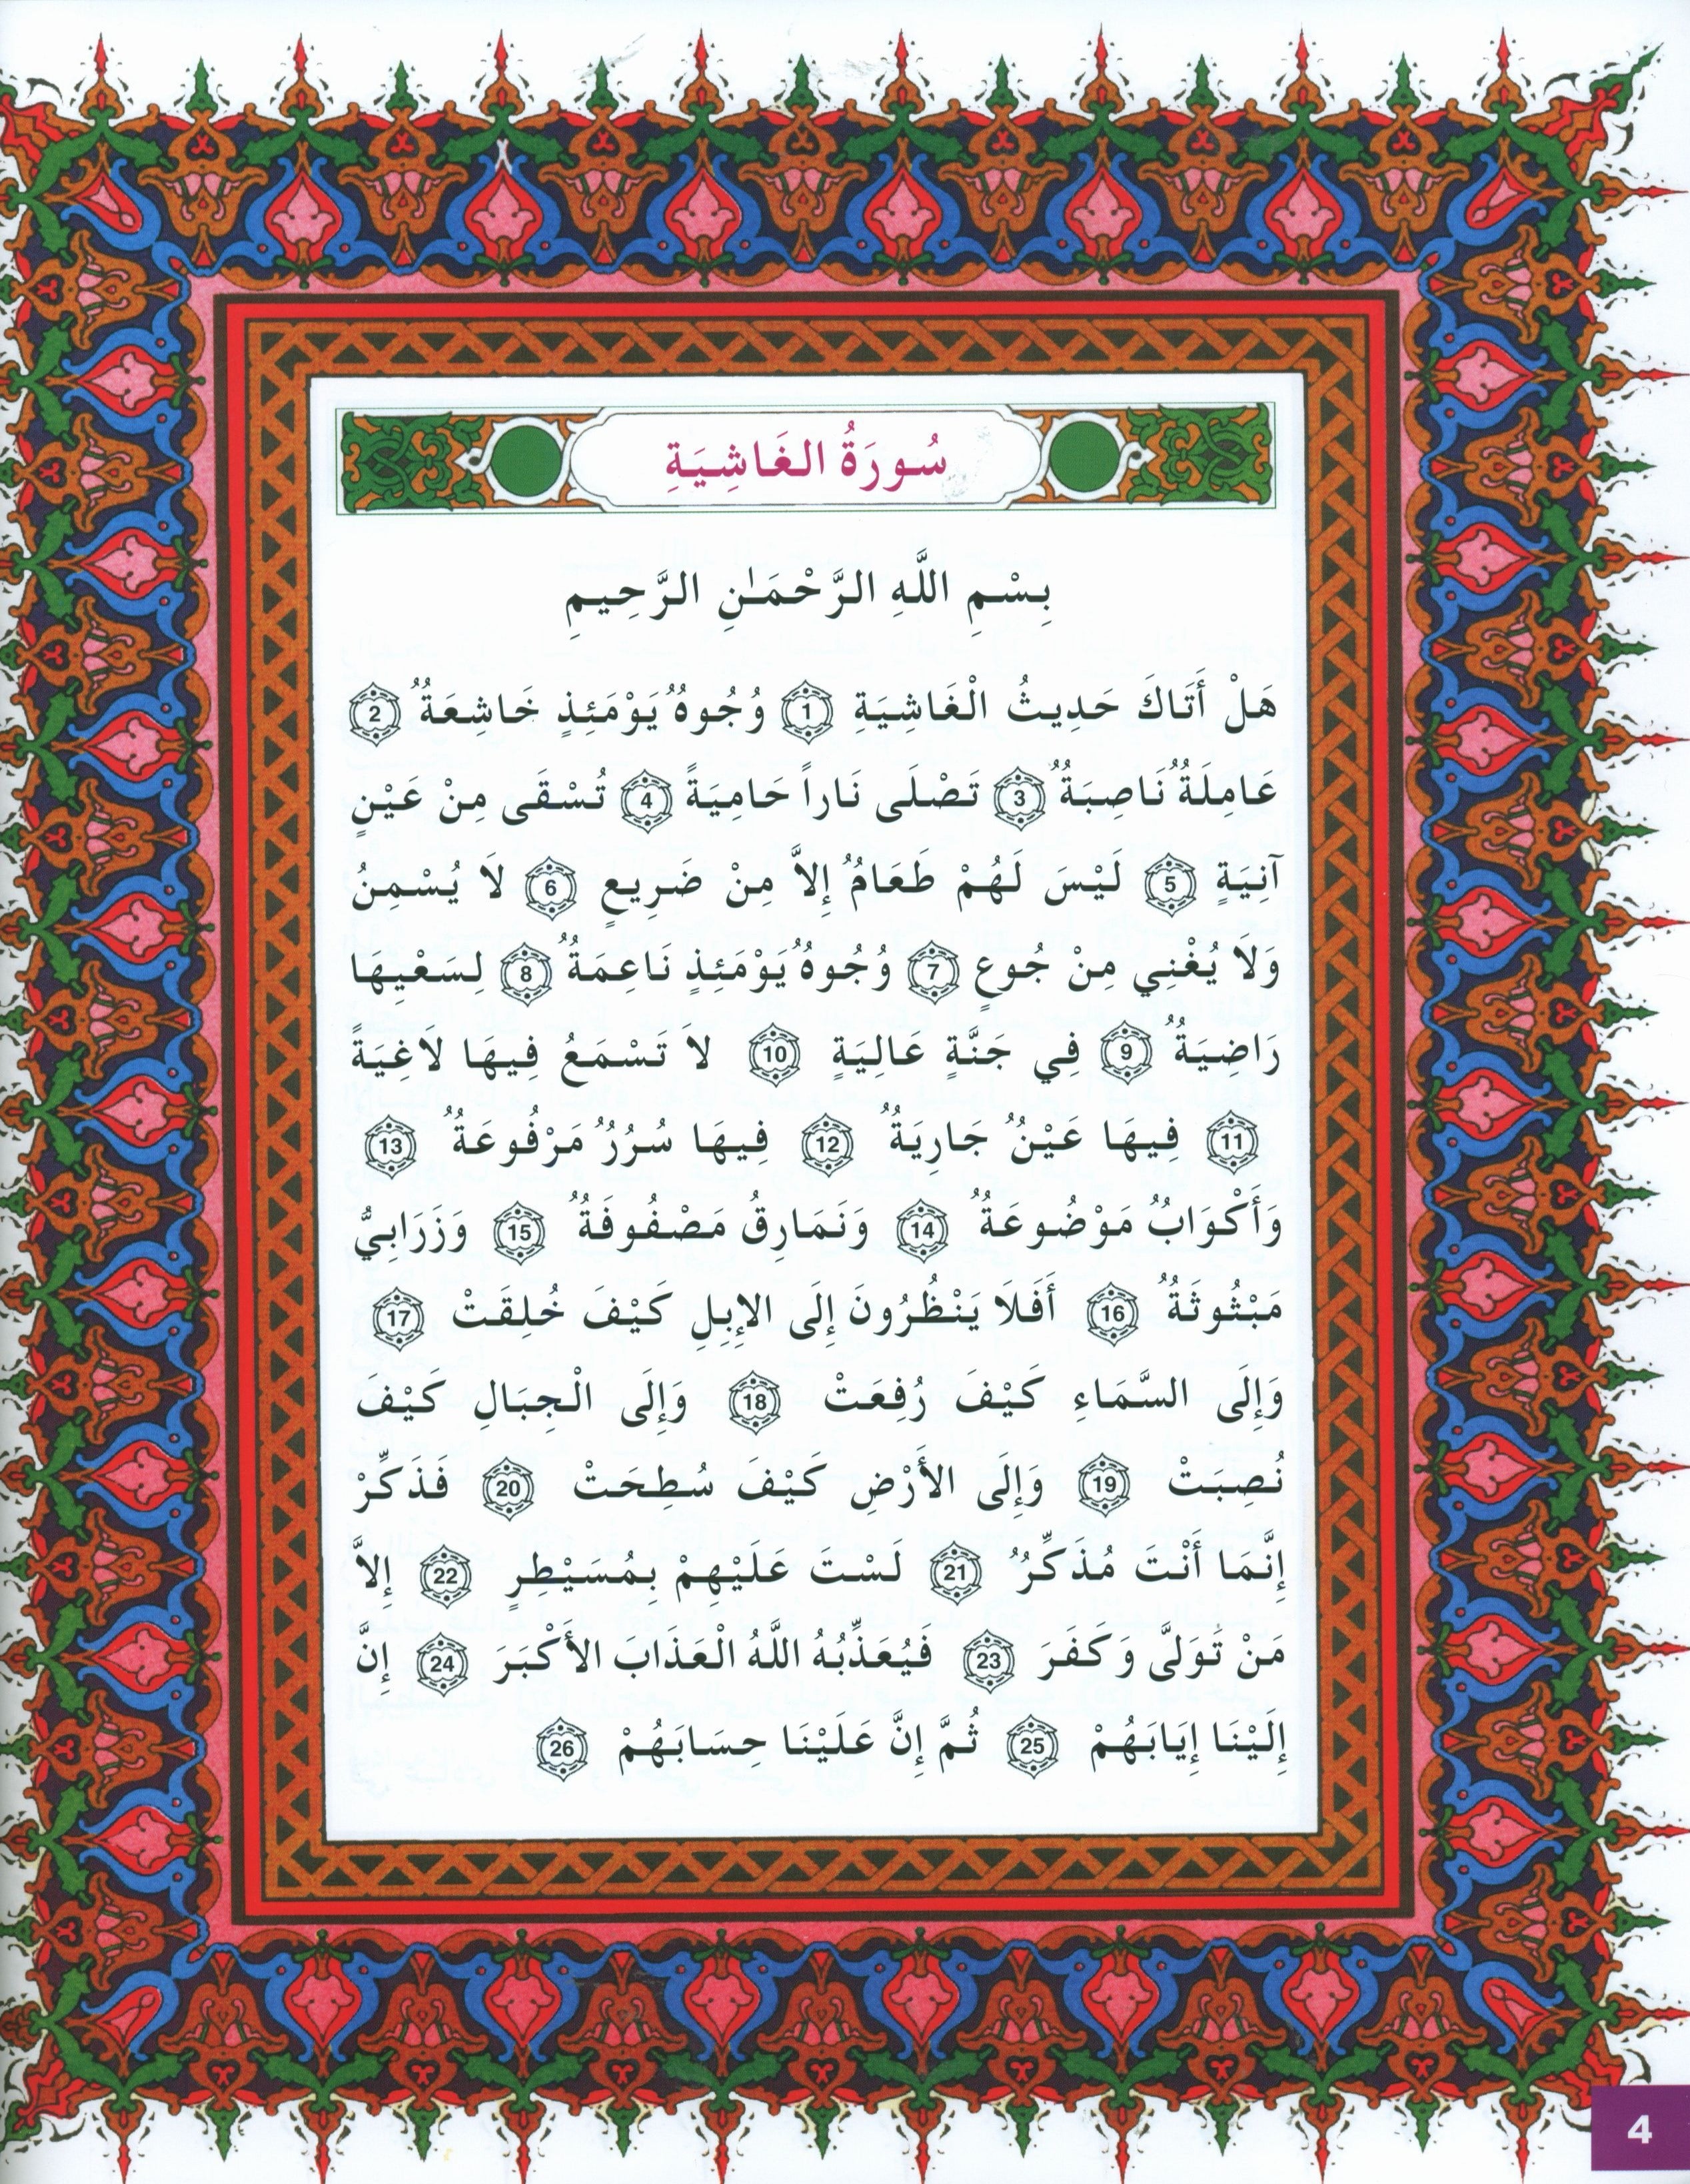 سُورَةُ الغَاشِيَةِ
بِسْمِ اللَّهِ الرَّحْمَـٰنِ الرَّحِيمِ
هَلْ أَتَاكَ حَدِيثُ الْغَاشِيَةِ 1 وُجُوهٌ يَوْمَئِذٍ خَاشِعَةٌ 2
عَامِلَةٌ نَاصِبَةٌ 3 تَصْلَى نَاراً حَامِيَةً 4 تُسْقَى مِنْ عَيْنٍ
آنِيَةٍ 5 لَيْسَ لَهُمْ طَعَامٌ إِلاَّ مِنْ ضَرِيعٍ 6 لَا يُسْمِنُ
وَلَا يُغْنِي مِنْ جُوعٍ 7 وُجُوهٌ يَوْمَئِذٍ نَاعِمَةٌ 8 لِسَعْيِهَا
رَاضِيَةٌ 9 فِي جَنَّةٍ عَالِيَةٍ 10 لاَ تَسْمَعُ فِيهَا لَاغِيَةً
11 فِيهَا عَيْنٌ جَارِيَةٌ 12 فِيهَا سُرُرٌ مَرْفُوعَةٌ 13
وَأَكْوَابٌ مَوْضُوعَةٌ 14 وَنَمَارِقُ مَصْفُوفَةٌ 15 وَزَرَابِيُّ
مَبْثُوثَةٌ 16 أَفَلَا يَنْظُرُونَ إِلَى الإِبِلِ كَيْفَ خُلِقَتْ 17
وَإِلَى السَّمَاءِ كَيْفَ رُفِعَتْ 18 وَإِلَى الْجِبَالِ كَيْفَ
نُصِبَتْ 19 وَإِلَى الأَرْضِ كَيْفَ سُطِحَتْ 20 فَذَكِّرْ
إِنَّمَا أَنْتَ مُذَكِّرٌ 21 لَسْتَ عَلَيْهِمْ بِمُسَيْطِرٍ 22 إِلاَّ
مَنْ تَوَلَّى وَكَفَرَ 23 فَيُعَذِّبُهُ اللَّهُ الْعَذَابَ الأَكْبَرَ 24 إِنَّ
إِلَيْنَا إِيَابَهُمْ 25 ثُمَّ إِنَّ عَلَيْنَا حِسَابَهُمْ 26
4